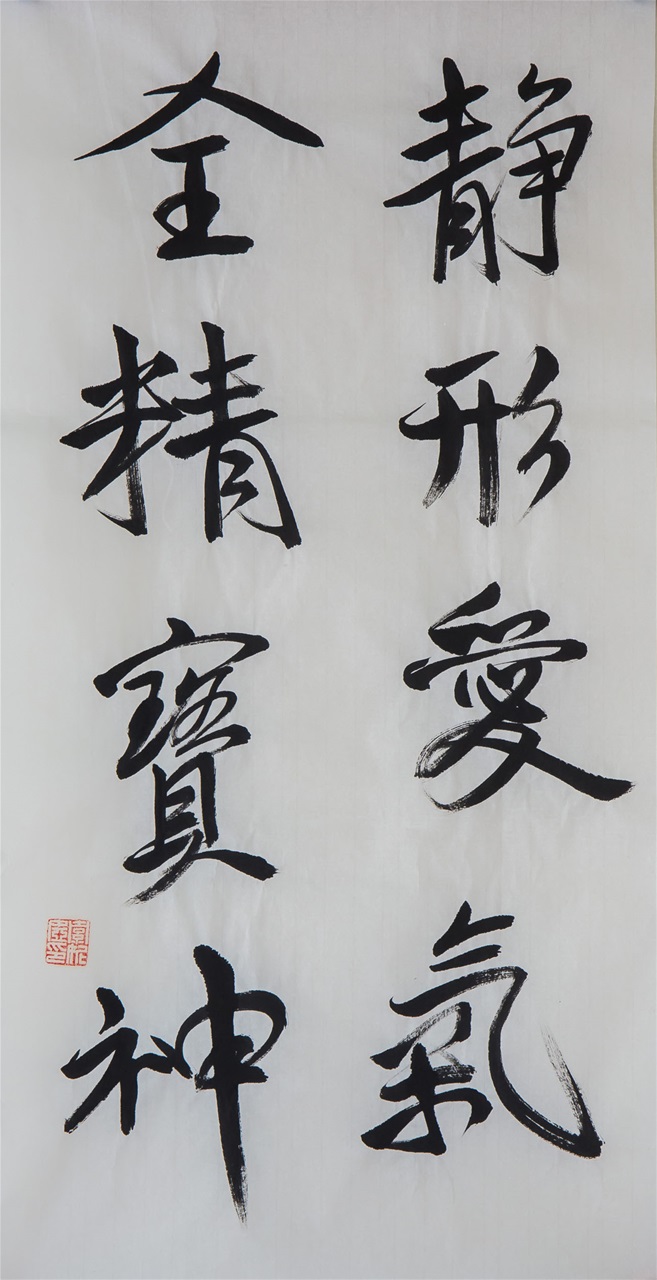 静形愛氣
全精寶神